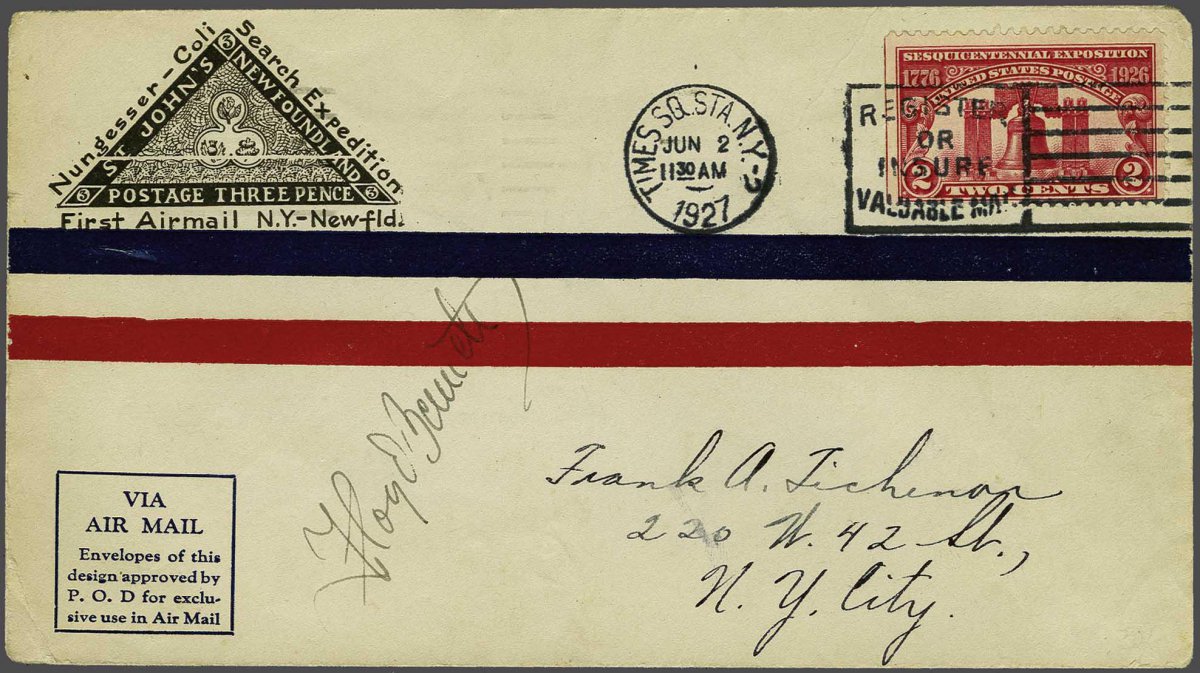 Nungesser-Coli Search Expedition
3
ST. JOHN'S NEWFOUNDLAND
3 POSTAGE THREE PENCE 3
First Airmail N.Y.-New-fld.
TIMES SQ. STA. N.Y.
JUN 2
11 30 AM
1927
SESQUICENTENNIAL EXPOSITION
1776 UNITED STATES POSTAGE 1926
2 TWO CENTS 2
REGISTER
OR
INSURE
VALUABLE MAIL
Floyd Bennett
Frank A. Tichenor
220 W. 42 St.,
N. Y. City.
VIA
AIR MAIL
Envelopes of this
design approved by
P. O. D for exclu-
sive use in Air Mail